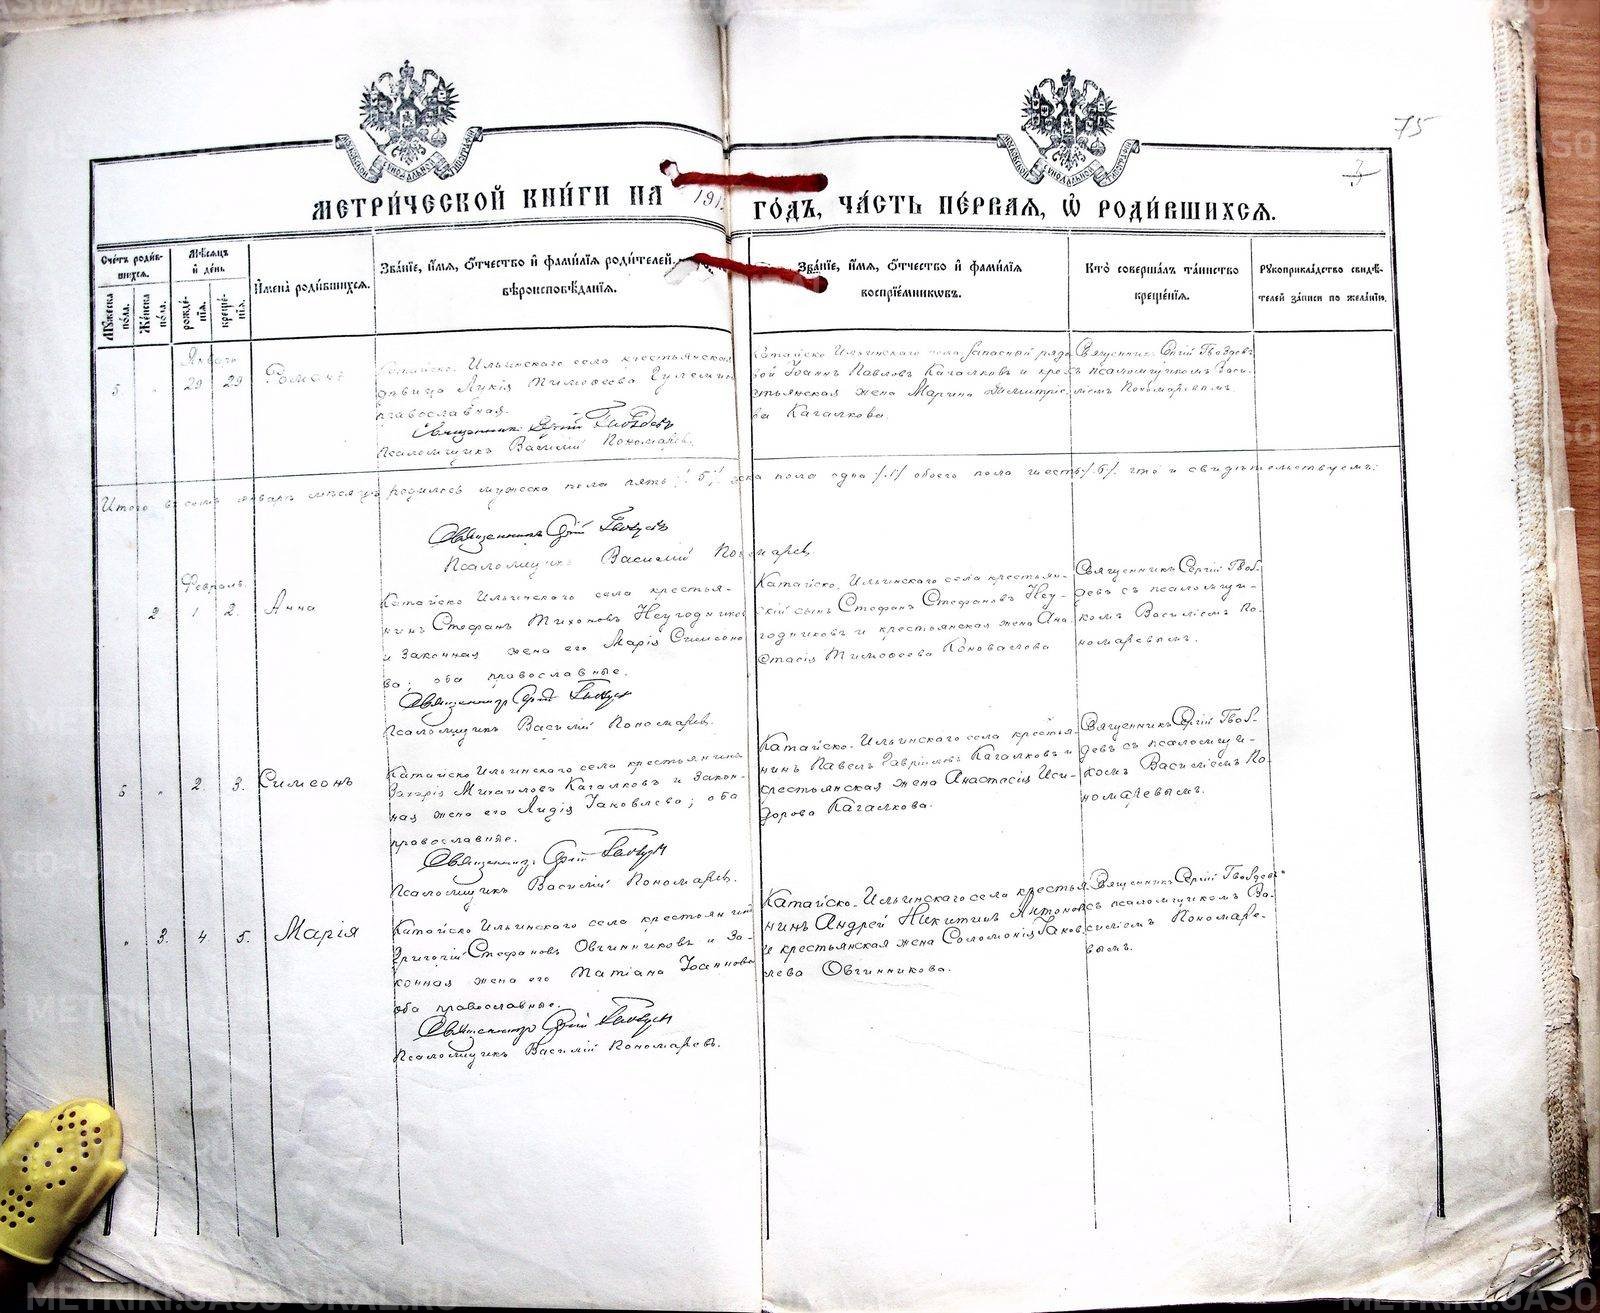 75
3
МЕТРИ́ЧЕСКОЙ КНИ́ГИ НА 191 ГО́ДЪ, ЧА́СТЬ ПЕ́РВАЯ, Ѿ РОДИ́ВШИХСЯ.
Сче́тъ роди́в-
шихся.
Му́жеска по́ла.
Же́нска по́ла.
Мѣ́сяцъ
и҆ де́нь
рожде́-
нїѧ.
креще́-
нїѧ.
И҆мена̀ роди́вшихся.
Зва́нїе, и҆́мя, ѻ҆́тчество и҆ фами́лїѧ роди́телей,
вѣроисповѣ́данїѧ.
Зва́нїе, и҆́мя, ѻ҆́тчество и҆ фами́лїѧ
воспрїе́мникѡвъ.
Кто̀ соверша́лъ та́инство
креще́нїѧ.
Рꙋкоприкла́дство свидѣ́-
телей за́писи по жела́нїю.
Январь
5 " 29 29 Романъ
Ильинскаго села крестьянская
дѣвица Лукія Тимофеева
православная.
Священникъ Сергій Гвоздевъ
Псаломщикъ Василій Пономаревъ.
Катайско Ильинскаго села запасной рядо
вой Іоаннъ Павловъ Кагалковъ и кре
стьянская жена Марина Димитріе
ва Кагалкова.
Священникъ Сергій Гвоздевъ
съ псаломщикомъ Васи-
ліемъ Пономаревымъ.
Итого въ семъ январѣ мѣсяцѣ родилось мужеска пола пять /5/ женска пола одна /1/ обоего пола шесть /6/ что и свидѣтельствуемъ:
Священникъ Сергій Гвоздевъ
Псаломщикъ Василій Пономаревъ
Февраль
" 2 1 2. Анна
Катайско Ильинскаго села крестья-
нинъ Стефанъ Тихоновъ Неугодников
и законная жена его Марія Симеоно
ва; оба православные.
Священникъ Сергій Гвоздевъ
Псаломщикъ Василій Пономаревъ.
Катайско. Ильинскаго села крестьян-
скій сынъ Стефанъ Стефановъ Неу-
годниковъ и крестьянская жена Ана
стасія Тимофеева Коновалова
Священникъ Сергій Гвоз-
девъ съ псаломщи-
комъ Василіемъ По-
номаревымъ.
5 " 2 3. Симеонъ
Катайско Ильинскаго села крестьянинъ
Захарія Михаиловъ Кагалковъ и закон-
ная жена его Лидія Іаковлева; оба
православные.
Священникъ Сергій Гвоздевъ
Псаломщикъ Василій Пономаревъ.
Катайско-Ильинскаго села крестья-
нинъ Павелъ Гавріиловъ Кагалковъ и
крестьянская жена Анастасія Иси-
дорова Кагалкова.
Священникъ Сергій Гвоз-
девъ съ псаломщи-
комъ Василіемъ По
номаревымъ.
" 3. 4 5. Марія
Катайско Ильинскаго села крестьянин
Григорій Стефановъ Овчинниковъ и За-
конная жена его Татіана Іоаннова
оба православные.
Священникъ Сергій Гвоздевъ
Псаломщикъ Василій Пономаревъ.
Катайско-Ильинскаго села крестья
нинъ Андрей Никитинъ Антонов
и крестьянская жена Соломонія Іаков
лева Овчинникова.
Священникъ Сергій Гвоздевъ
съ псаломщикомъ Ва-
силіемъ Пономаре-
вымъ.
METRIKI.GASO-URAL.RU